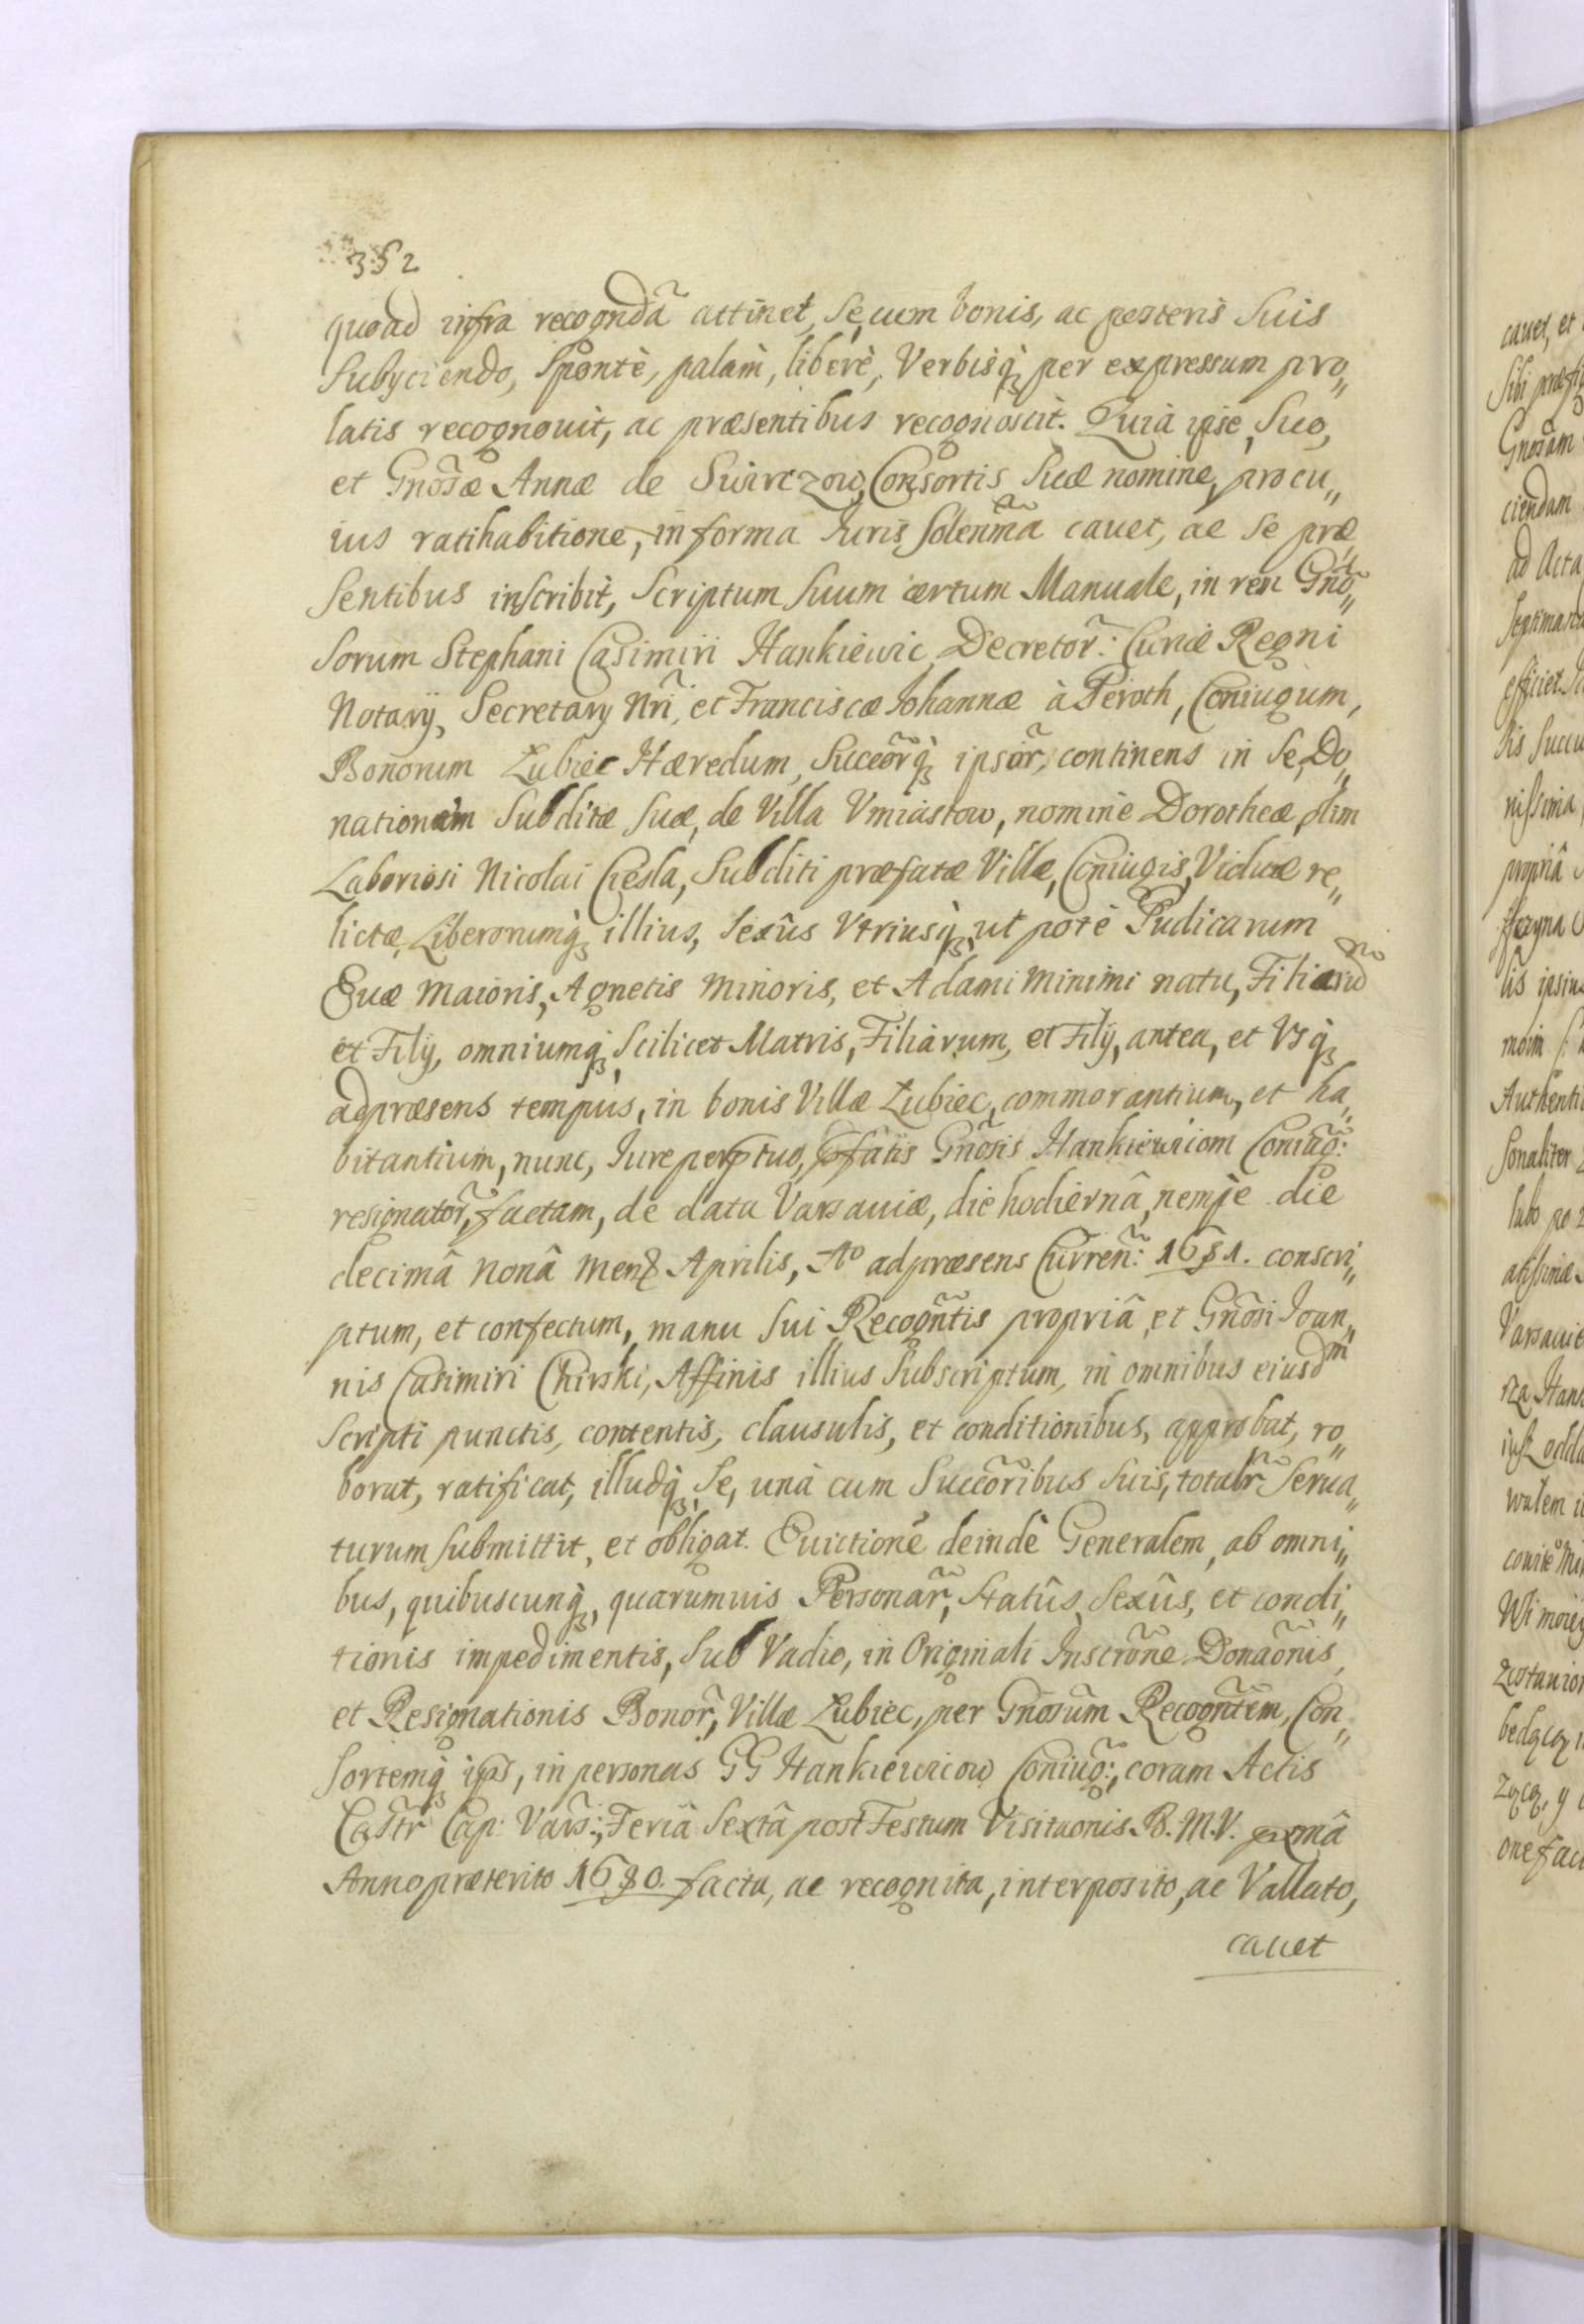 352
quoad infra recogndã attinet, se, cum bonis, ac posteris Suis
Subyciendo, Spontè, palam, liberè, Verbisq; per expressum pro„
latis recognouit, ac præsentibus recognoscit. Quia ipse, Suo,
et Gnõsæ Annæ de Swirczow, Consortis Suæ nomine, pro cu„
ius ratihabitione, in forma Iuris Solenñma cauet, ac se præ„
sentibus inscribit, Scriptum Suum certum Manuale, in rem Gnõ„
sorum Stephani Casimiri Hankiewic, Decretor̃: Curiæ Regni
Notarÿ, Secretary Nr̃i, et Franciscæ Iohannæ à Peroth, Coniugum,
Bonorum Łubiec Hæredum, Succõrq; ipsor̃, continens in Se, Do„
nationem Subditæ Suæ, de Villa Vmiastow, nominè Dorotheæ, olim
Laboriosi Nicolai Ciesla, Subditi præfatæ Villæ, Coniugis, Viduæ re„
lictæ, Liberorumq; illius, Sexûs Vtriusq;, ut potè Pudicarum
Euæ Maioris, Agnetis Minoris, et Adami Minimi natu, Filiarũ
et Filÿ, omniumq; Scilicet Matris, Filiarum, et Filÿ, antea, et Vsq;
ad præsens tempus, in bonis Villæ Łubiec, commorantium, et ha„
bitantium, nunc, Iure perptuo, pfatis Gnõsis Hankiewiciom Coniug̃:
resignator̃, factam, de data Varsauiæ, die hodiernâ, nempe die
decimâ nonâ Mens Aprilis, Ao adpræsens Curreñ: 1681. conscri„
ptum, et confectum, manu Sui Recogñtis propriâ, et Gnõsi Ioan„
nis Casimiri Chirski, Affinis illius Subscriptum, in omnibus eiusdm
Scripti punctis, contentis, clausulis, et conditionibus, approbat, ro„
borat, ratificat, illudq; Se, unà cum Succõribus Suis, totalr̃ Serua„
turum submittit, et obligat. Euictionẽ deindè Generalem, ab omni„
bus, quibuscunq;, quarumuis Personar̃, Statûs, Sexûs, et condi„
tionis impedimentis, Sub Vadio, in Originali Inscrõne Donaõnis,
et Resignationis Bonor̃, Villæ Łubiec, per Gnõsum Recogñtem, Con„
sortemq; ips, in personas GG Hankiewiciow Coniug̃:, coram Actis
Castr̃ Cap: Vars̃:, Feriâ Sextâ post Festum Visitaonis B. M. V. pxmâ
Anno præterito 1680. facta, ac recognita, interposito, ac Vallato,
cauet